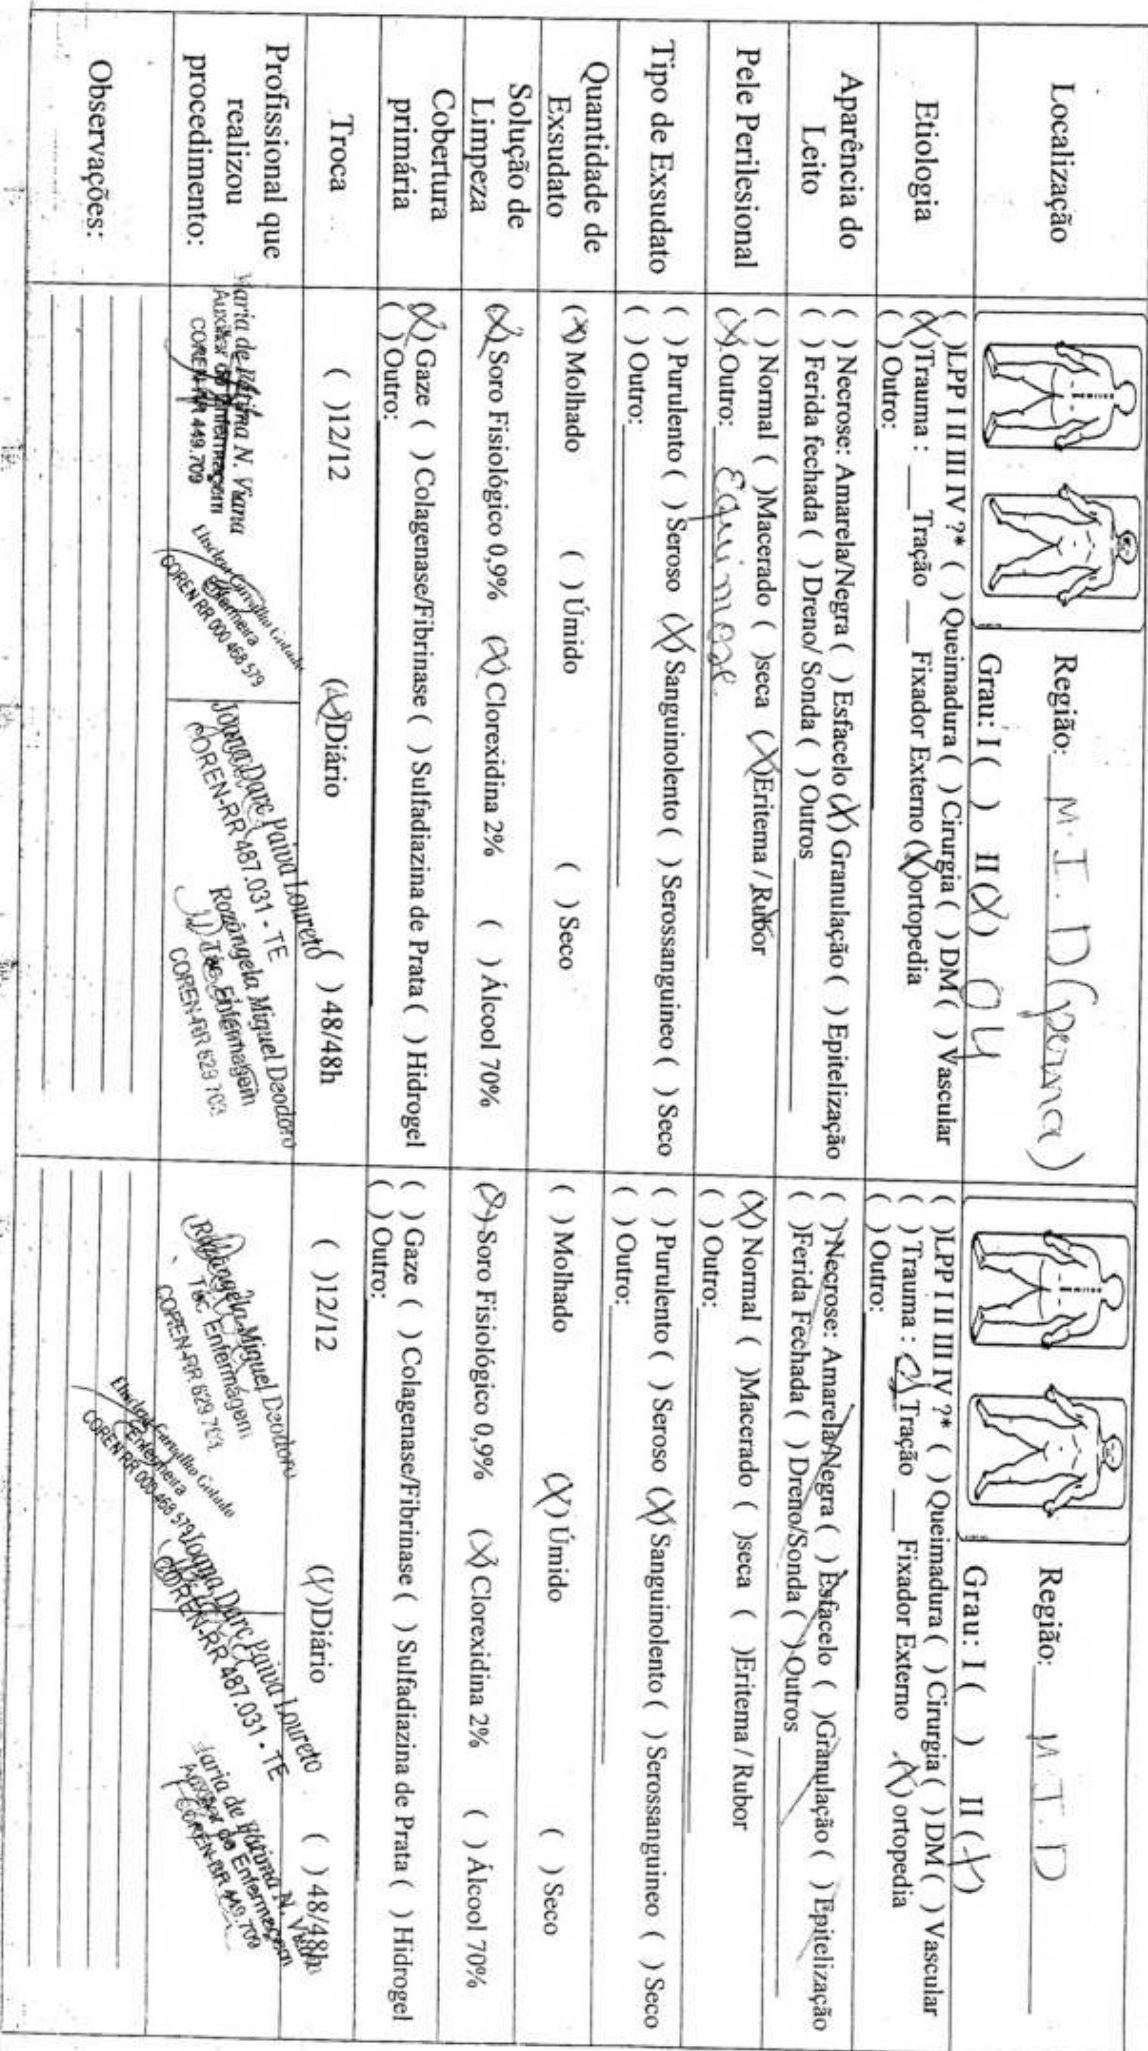 Localização
Região: M.I.D (perna)
Grau: I ( ) II (X) 04
Região: M.I.D
Grau: I ( ) II (X)
Etiologia
( )LPP I II III IV ?* ( ) Queimadura ( ) Cirurgia ( ) DM ( ) Vascular
(X)Trauma : ___Tração ___ Fixador Externo (X)ortopedia
( ) Outro:
( )LPP I II III IV ?* ( ) Queimadura ( ) Cirurgia ( ) DM ( ) Vascular
( ) Trauma : Tração ___ Fixador Externo (X) ortopedia
( ) Outro:
Aparência do
Leito
( ) Necrose: Amarela/Negra ( ) Esfacelo (X) Granulação ( ) Epitelização
( ) Ferida fechada ( ) Dreno/ Sonda ( ) Outros
( )Necrose: Amarela/Negra ( ) Esfacelo ( )Granulação ( ) Epitelização
( )Ferida Fechada ( ) Dreno/Sonda ( ) Outros
Pele Perilesional
( ) Normal ( )Macerado ( )seca (X)Eritema / Rubor
(X) Outro: Equimose
(X) Normal ( )Macerado ( )seca ( )Eritema / Rubor
( ) Outro:
Tipo de Exsudato
( ) Purulento ( ) Seroso (X) Sanguinolento ( ) Serossanguineo ( ) Seco
( ) Outro:
( ) Purulento ( ) Seroso (X) Sanguinolento ( ) Serossanguineo ( ) Seco
( ) Outro:
Quantidade de
Exsudato
(X) Molhado ( ) Úmido ( ) Seco
( ) Molhado (X) Úmido ( ) Seco
Solução de
Limpeza
(X) Soro Fisiológico 0,9% (X) Clorexidina 2% ( ) Álcool 70%
(X) Soro Fisiológico 0,9% (X) Clorexidina 2% ( ) Álcool 70%
Cobertura
primária
(X) Gaze ( ) Colagenase/Fibrinase ( ) Sulfadiazina de Prata ( ) Hidrogel
( ) Outro:
( ) Gaze ( ) Colagenase/Fibrinase ( ) Sulfadiazina de Prata ( ) Hidrogel
( ) Outro:
Troca
( )12/12 (X)Diário ( ) 48/48h
( )12/12 (X)Diário ( ) 48/48h
Profissional que
realizou
procedimento:
Maria de Fátima N. Viana
Auxiliar de Enfermagem
COREN-RR 449.709
Carvalho
Enfermeira
COREN RR 000 468 579
Joana Darc Paiva Loureto
COREN-RR 487.031 - TE
Rozângela Miguel Deodoro
Téc. Enfermagem
COREN-RR 629 703
Rozângela Miguel Deodoro
Téc. Enfermagem
COREN-RR 629 703
Carvalho
Enfermeira
COREN RR 000 468 579
Joana Darc Paiva Loureto
COREN-RR 487.031 - TE
Maria de Fátima N. Viana
Auxiliar de Enfermagem
COREN-RR 449.709
Observações: